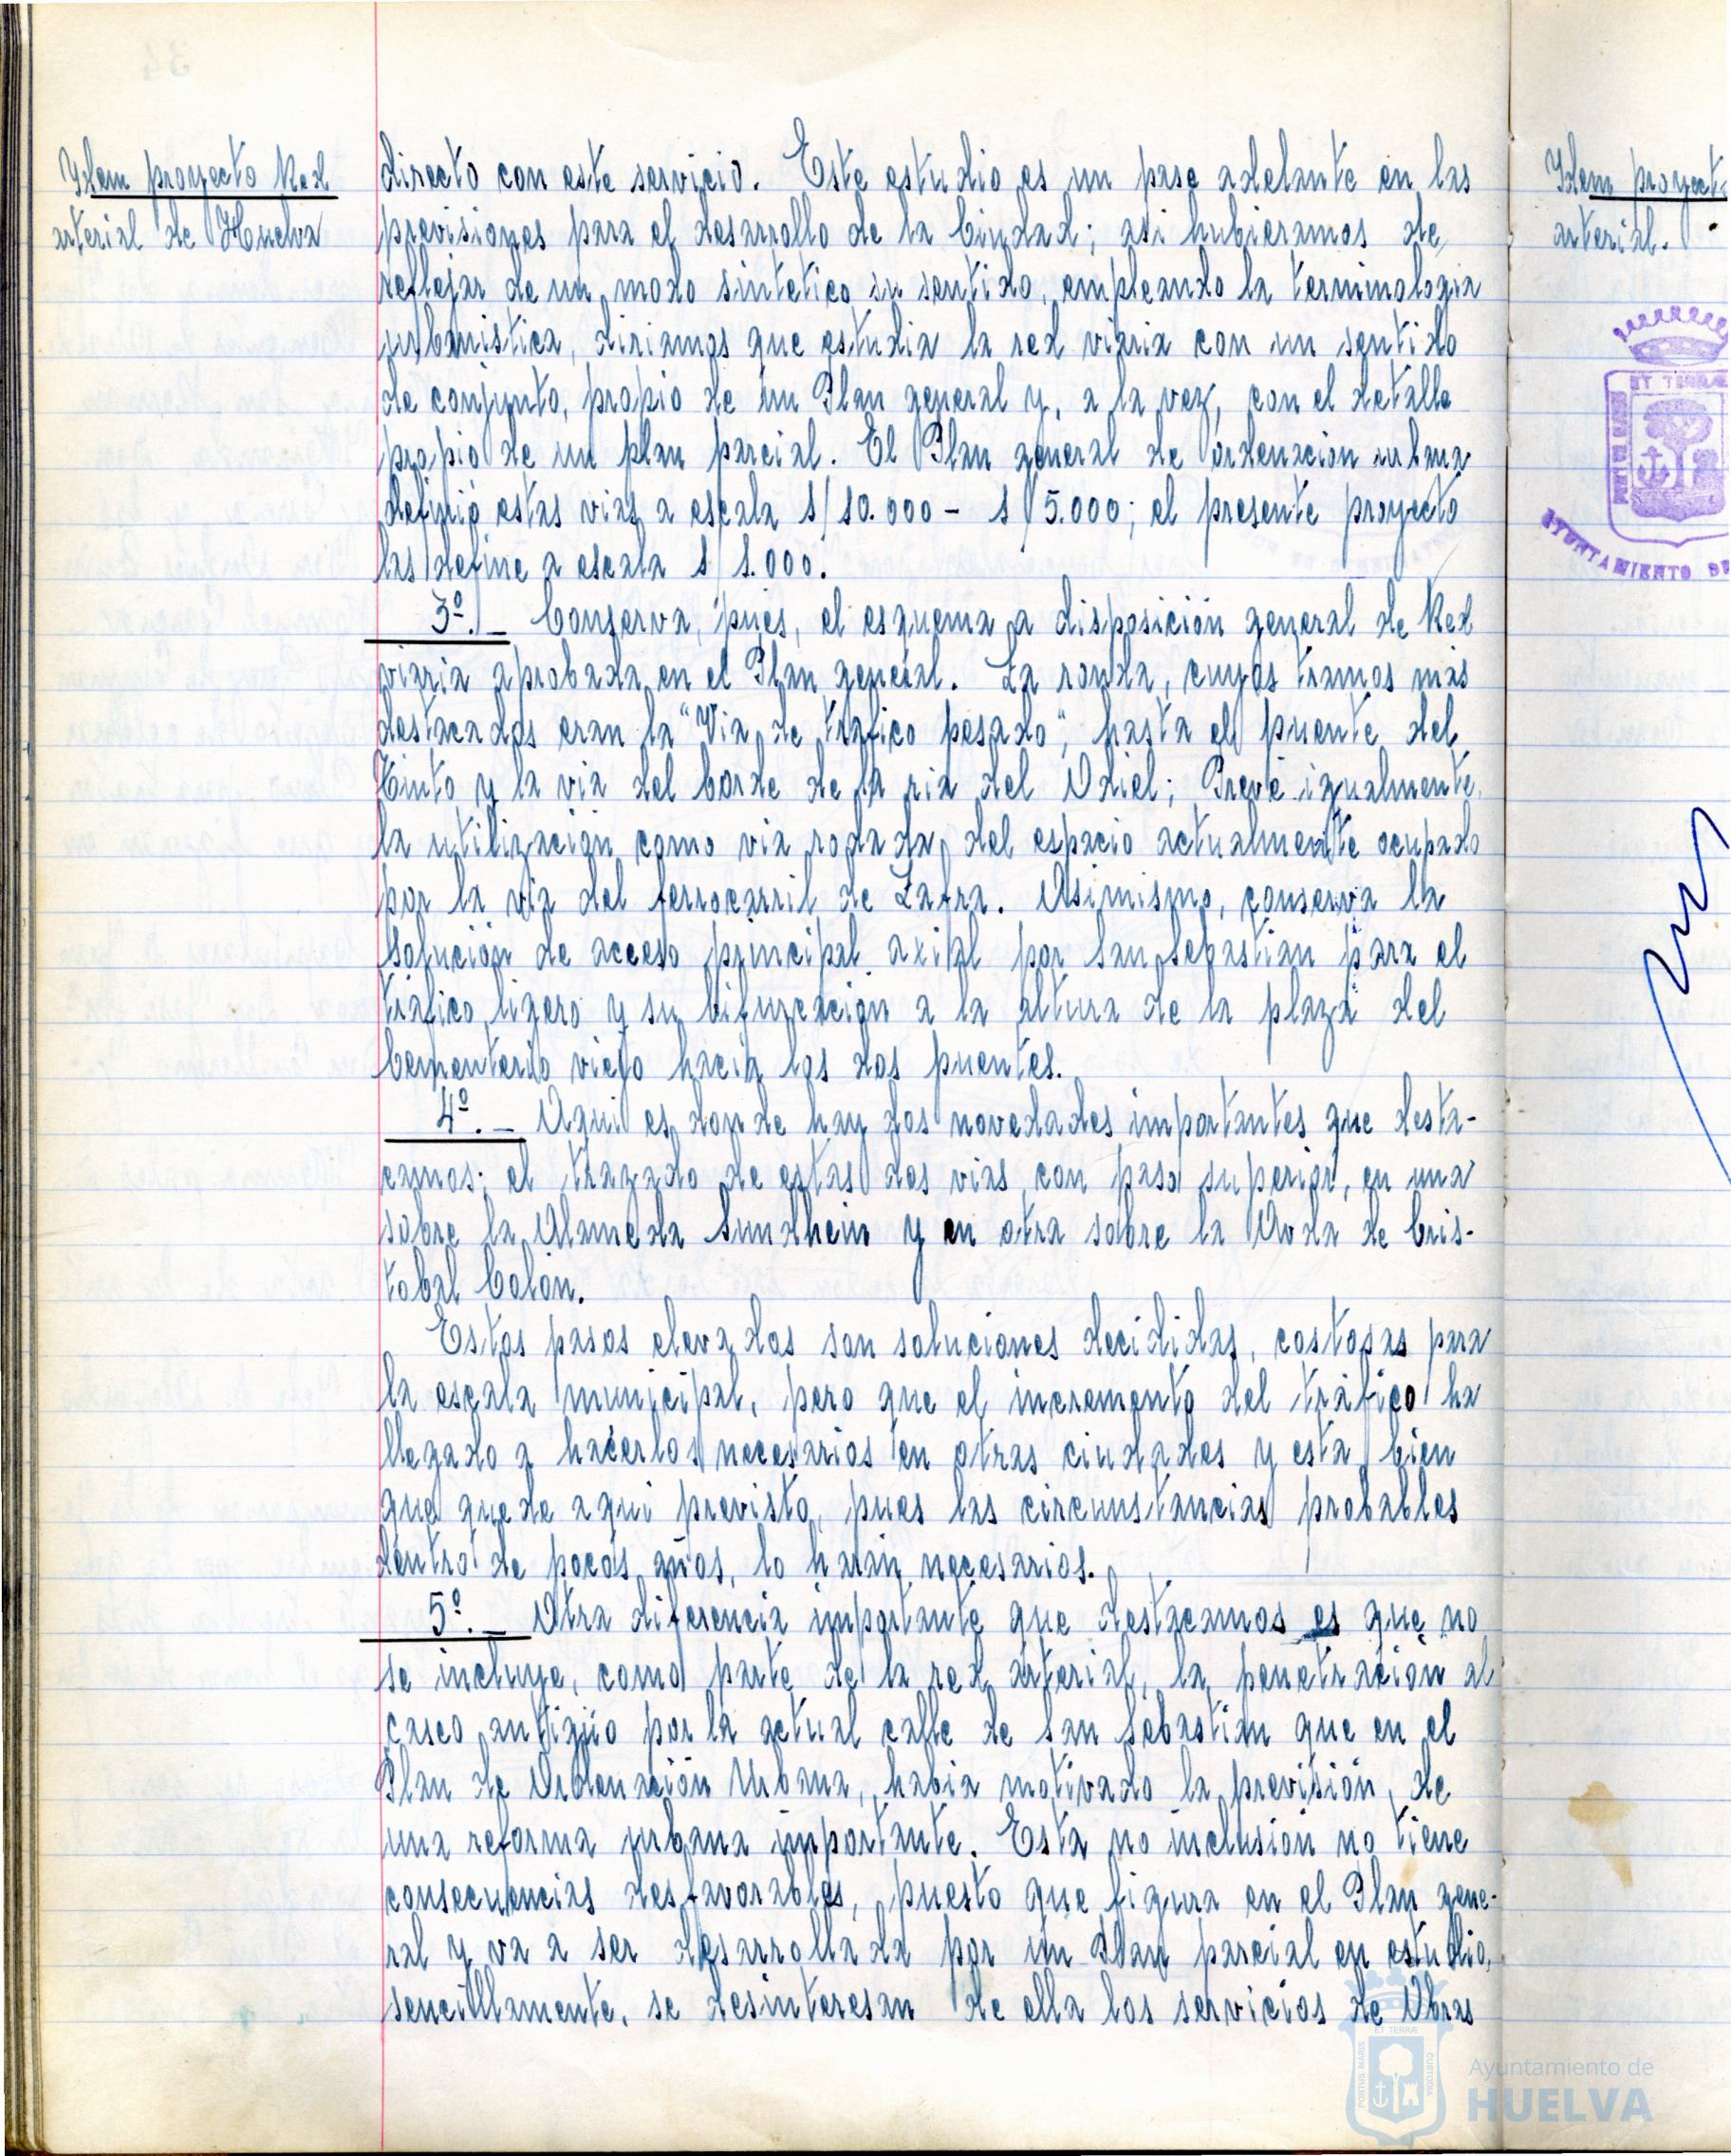 Idem proyecto Red
arterial de Huelva
directo con este servicio. Este estudio es un paso adelante en las
previsiones para el desarrollo de la Ciudad; asi hubieramos de
reflejar de un modo sintetico su sentido, empleando la terminologia
urbanistica, diriamos que estudia la red viaria con un sentido
de conjunto, propio de un Plan general y, a la vez, con el detalle
propio de un plan parcial. El Plan general de ordenacion urbana
definió estas vias a escala 1/10.000 - 1/5.000; el presente proyecto
las define a escala 1/1.000.
3º.- Conserva, pues, el esquema a disposición general de Red
viaria aprobada en el Plan general. La ronda, cuyos tramos más
destacados eran la "Via de tráfico pesado", hasta el puente del
Tinto y la via del borde de la ria del Odiel; Prevé igualmente
la utilización como via rodada, del espacio actualmente ocupado
por la via del ferrocarril de Zafra. Asimismo, conserva la
solución de acceso principal axial por San Sebastian para el
tráfico ligero y su bifurcación a la altura de la plaza del
Cementerio viejo hacia los dos puentes.
4º.- Aqui es donde hay dos novedades importantes que desta-
camos: el trazado de estas dos vias con paso superior, en una
sobre la Alameda Sundhein y en otra sobre la Avda de Cris-
tobal Colón.
Estos pasos elevados son soluciones decididas, costosas para
la escala municipal, pero que el incremento del tráfico ha
llegado a hacerlos necesarios en otras ciudades y está bien
que quede aqui previsto, pues las circunstancias probables
dentro de pocos años, lo harán necesarios.
5º.- Otra diferencia importante que destacamos es que no
se incluye, como parte de la red arterial, la penetración al
casco antigüo por la actual calle de San Sebastian que en el
Plan de Ordenación Urbana, habia motivado la previsión de
una reforma urbana importante. Esta no inclusión no tiene
consecuencias desfavorables, puesto que figura en el Plan gene-
ral y va a ser desarrollada por un Plan parcial en estudio,
sencillamente, se desinteresan de ella los servicios de Obras
Idem proyect
arterial.
ET TERRAE
PORTUS MARIS
AYUNTAMIENTO DE
ET TERRÆ
PORTUS MARIS
CUSTODIA
Ayuntamiento de
HUELVA